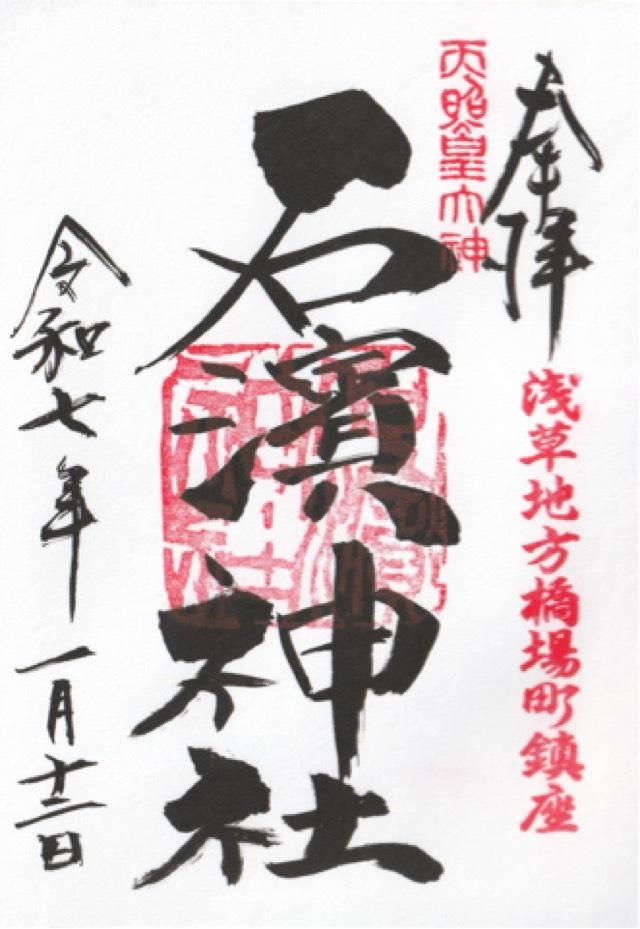 奉拝
浅草地方橋場町鎮座
天照皇大神
石濱神社
令和七年一月十二日